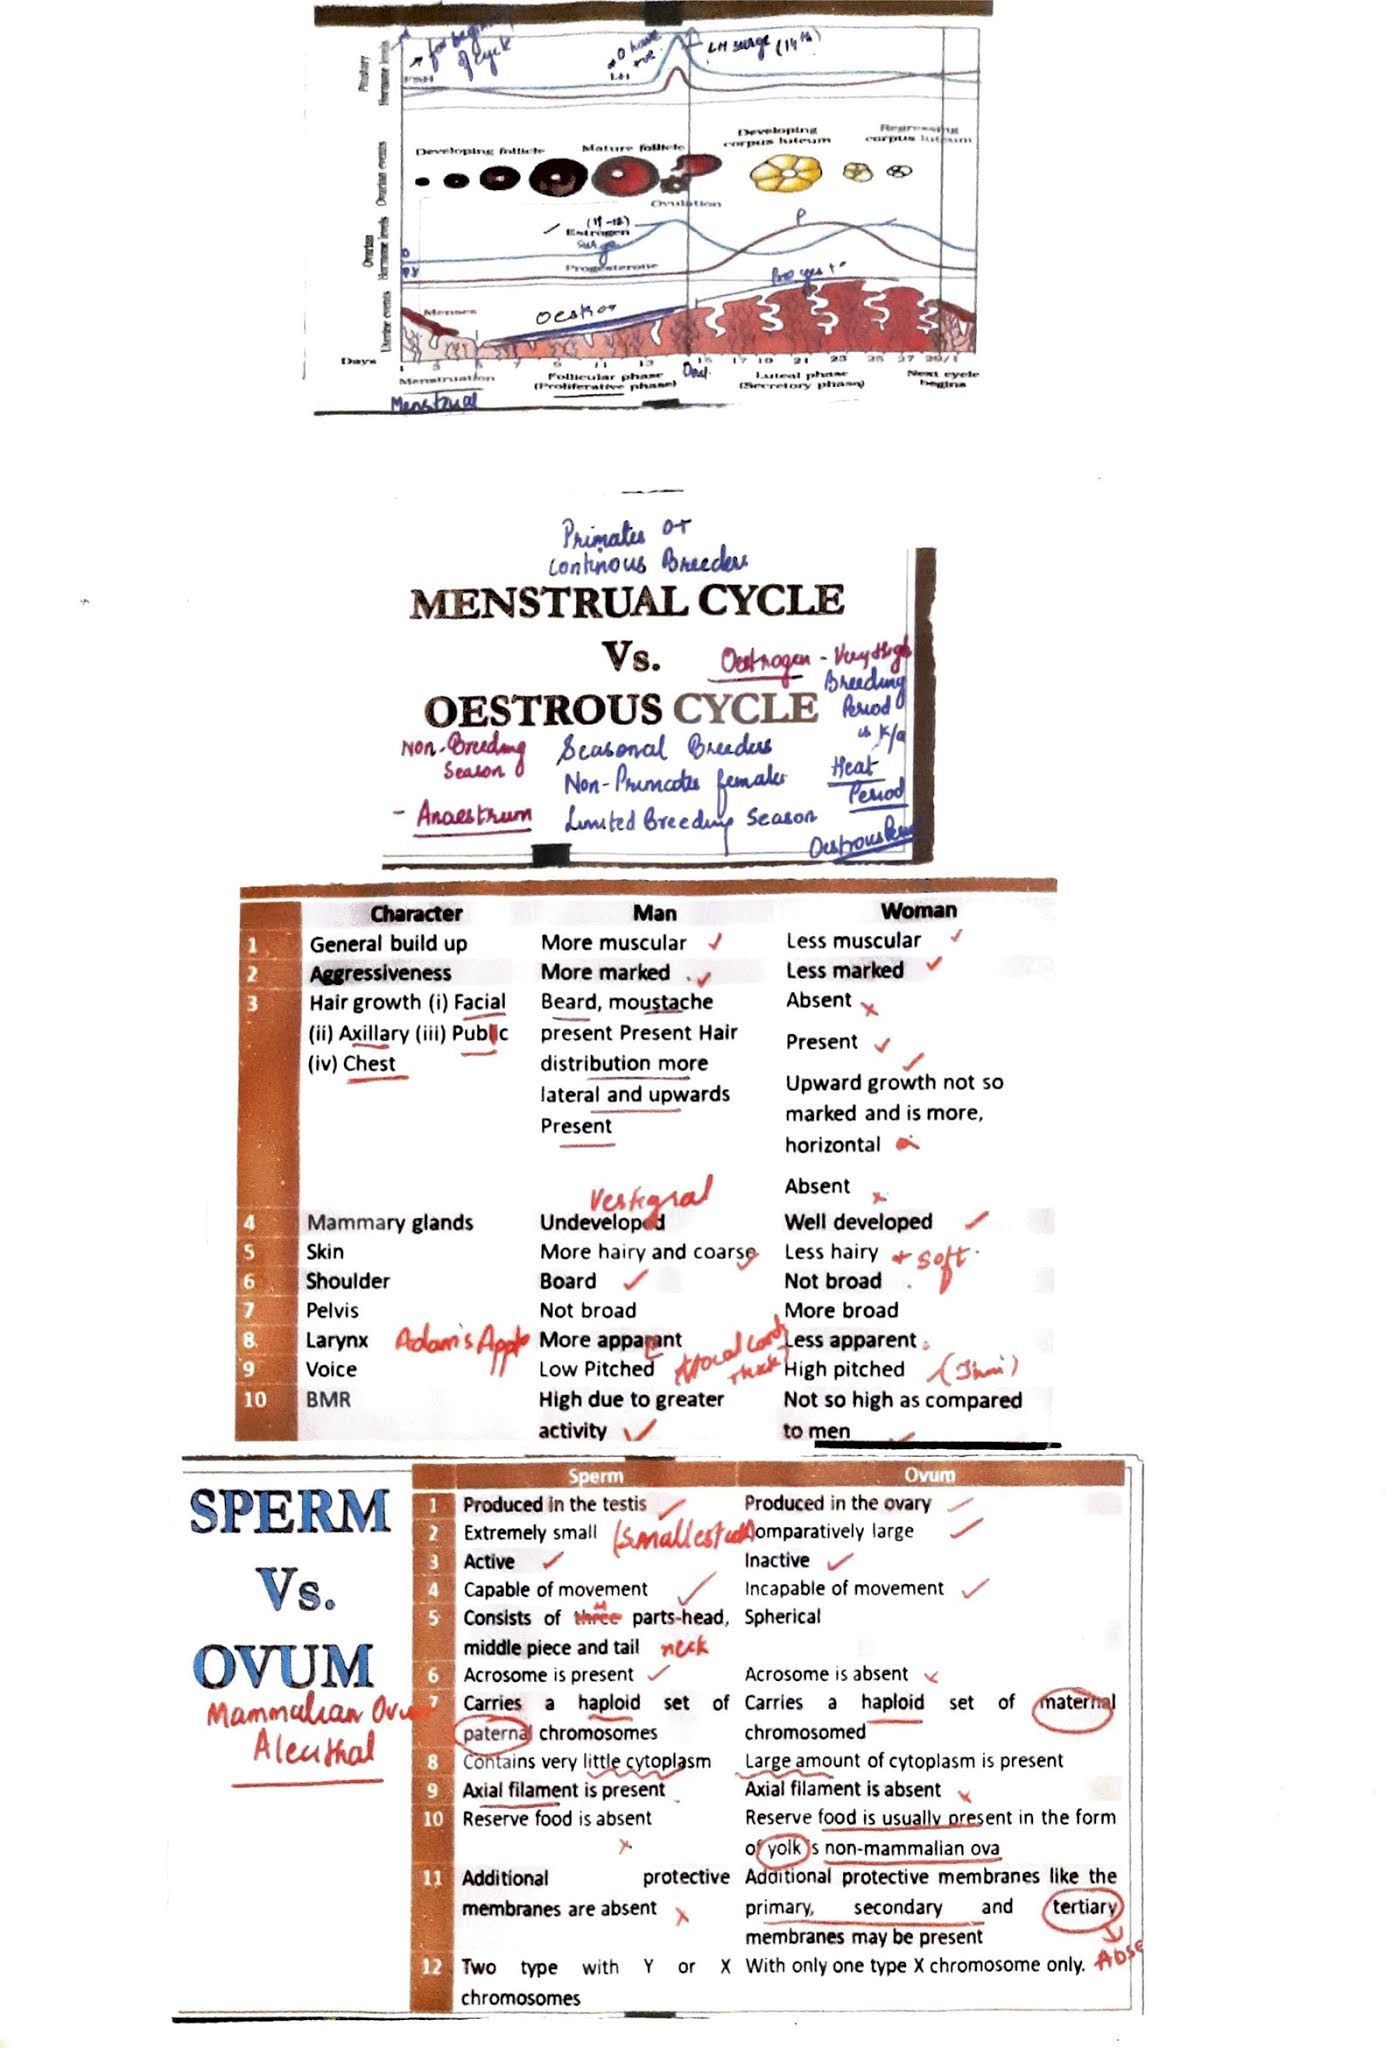 → for beginning
of cycle
LH surge (14th)
Pituitary
Hormone levels
FSH
LH
Developing
corpus luteum
Regressing
corpus luteum
Developing follicle
Mature follicle
Ovarian events
Ovulation
Estrogen
surge
P
Ovarian
Hormone levels
Progesterone
Menses
Uterine events
Days
1 3 5 7 9 11 13 15 17 19 21 23 25 27 29/1
Menstruation
Follicular phase
(Proliferative phase)
Luteal phase
(Secretory phase)
Next cycle
begins
Menstrual
Primates or
Continous Breeders
MENSTRUAL CYCLE
Vs.
Oestrogen - Very High
OESTROUS CYCLE
Breeding
Period
is K/a
Heat
Period
Non-Breeding
Season
- Anaestrum
Seasonal Breeders
Non-Primates females
Limited Breeding Season
Character Man Woman
1 General build up More muscular ✓ Less muscular ✓
2 Aggressiveness More marked ✓ Less marked ✓
3 Hair growth (i) Facial Beard, moustache Absent x
(ii) Axillary (iii) Public present Present Hair Present ✓
(iv) Chest distribution more
lateral and upwards Upward growth not so
Present marked and is more,
horizontal
Absent x
Vestigral
4 Mammary glands Undeveloped Well developed ✓
5 Skin More hairy and coarse Less hairy + soft
6 Shoulder Board ✓ Not broad
7 Pelvis Not broad More broad
8 Larynx Adam's Apple More apparant Less apparent
9 Voice Low Pitched High pitched
10 BMR High due to greater Not so high as compared
activity ✓ to men
SPERM
Vs.
OVUM
Mammalian Ovum
Alecithal
Sperm Ovum
1 Produced in the testis ✓ Produced in the ovary
2 Extremely small (Smallest cell) Comparatively large
3 Active ✓ Inactive ✓
4 Capable of movement ✓ Incapable of movement ✓
5 Consists of three parts-head, Spherical
middle piece and tail neck
6 Acrosome is present ✓ Acrosome is absent x
7 Carries a haploid set of Carries a haploid set of maternal
paternal chromosomes chromosomed
8 Contains very little cytoplasm Large amount of cytoplasm is present
9 Axial filament is present Axial filament is absent x
10 Reserve food is absent Reserve food is usually present in the form
x of yolk s non-mammalian ova
11 Additional protective Additional protective membranes like the
membranes are absent x primary, secondary and tertiary
membranes may be present
12 Two type with Y or X With only one type X chromosome only.
chromosomes